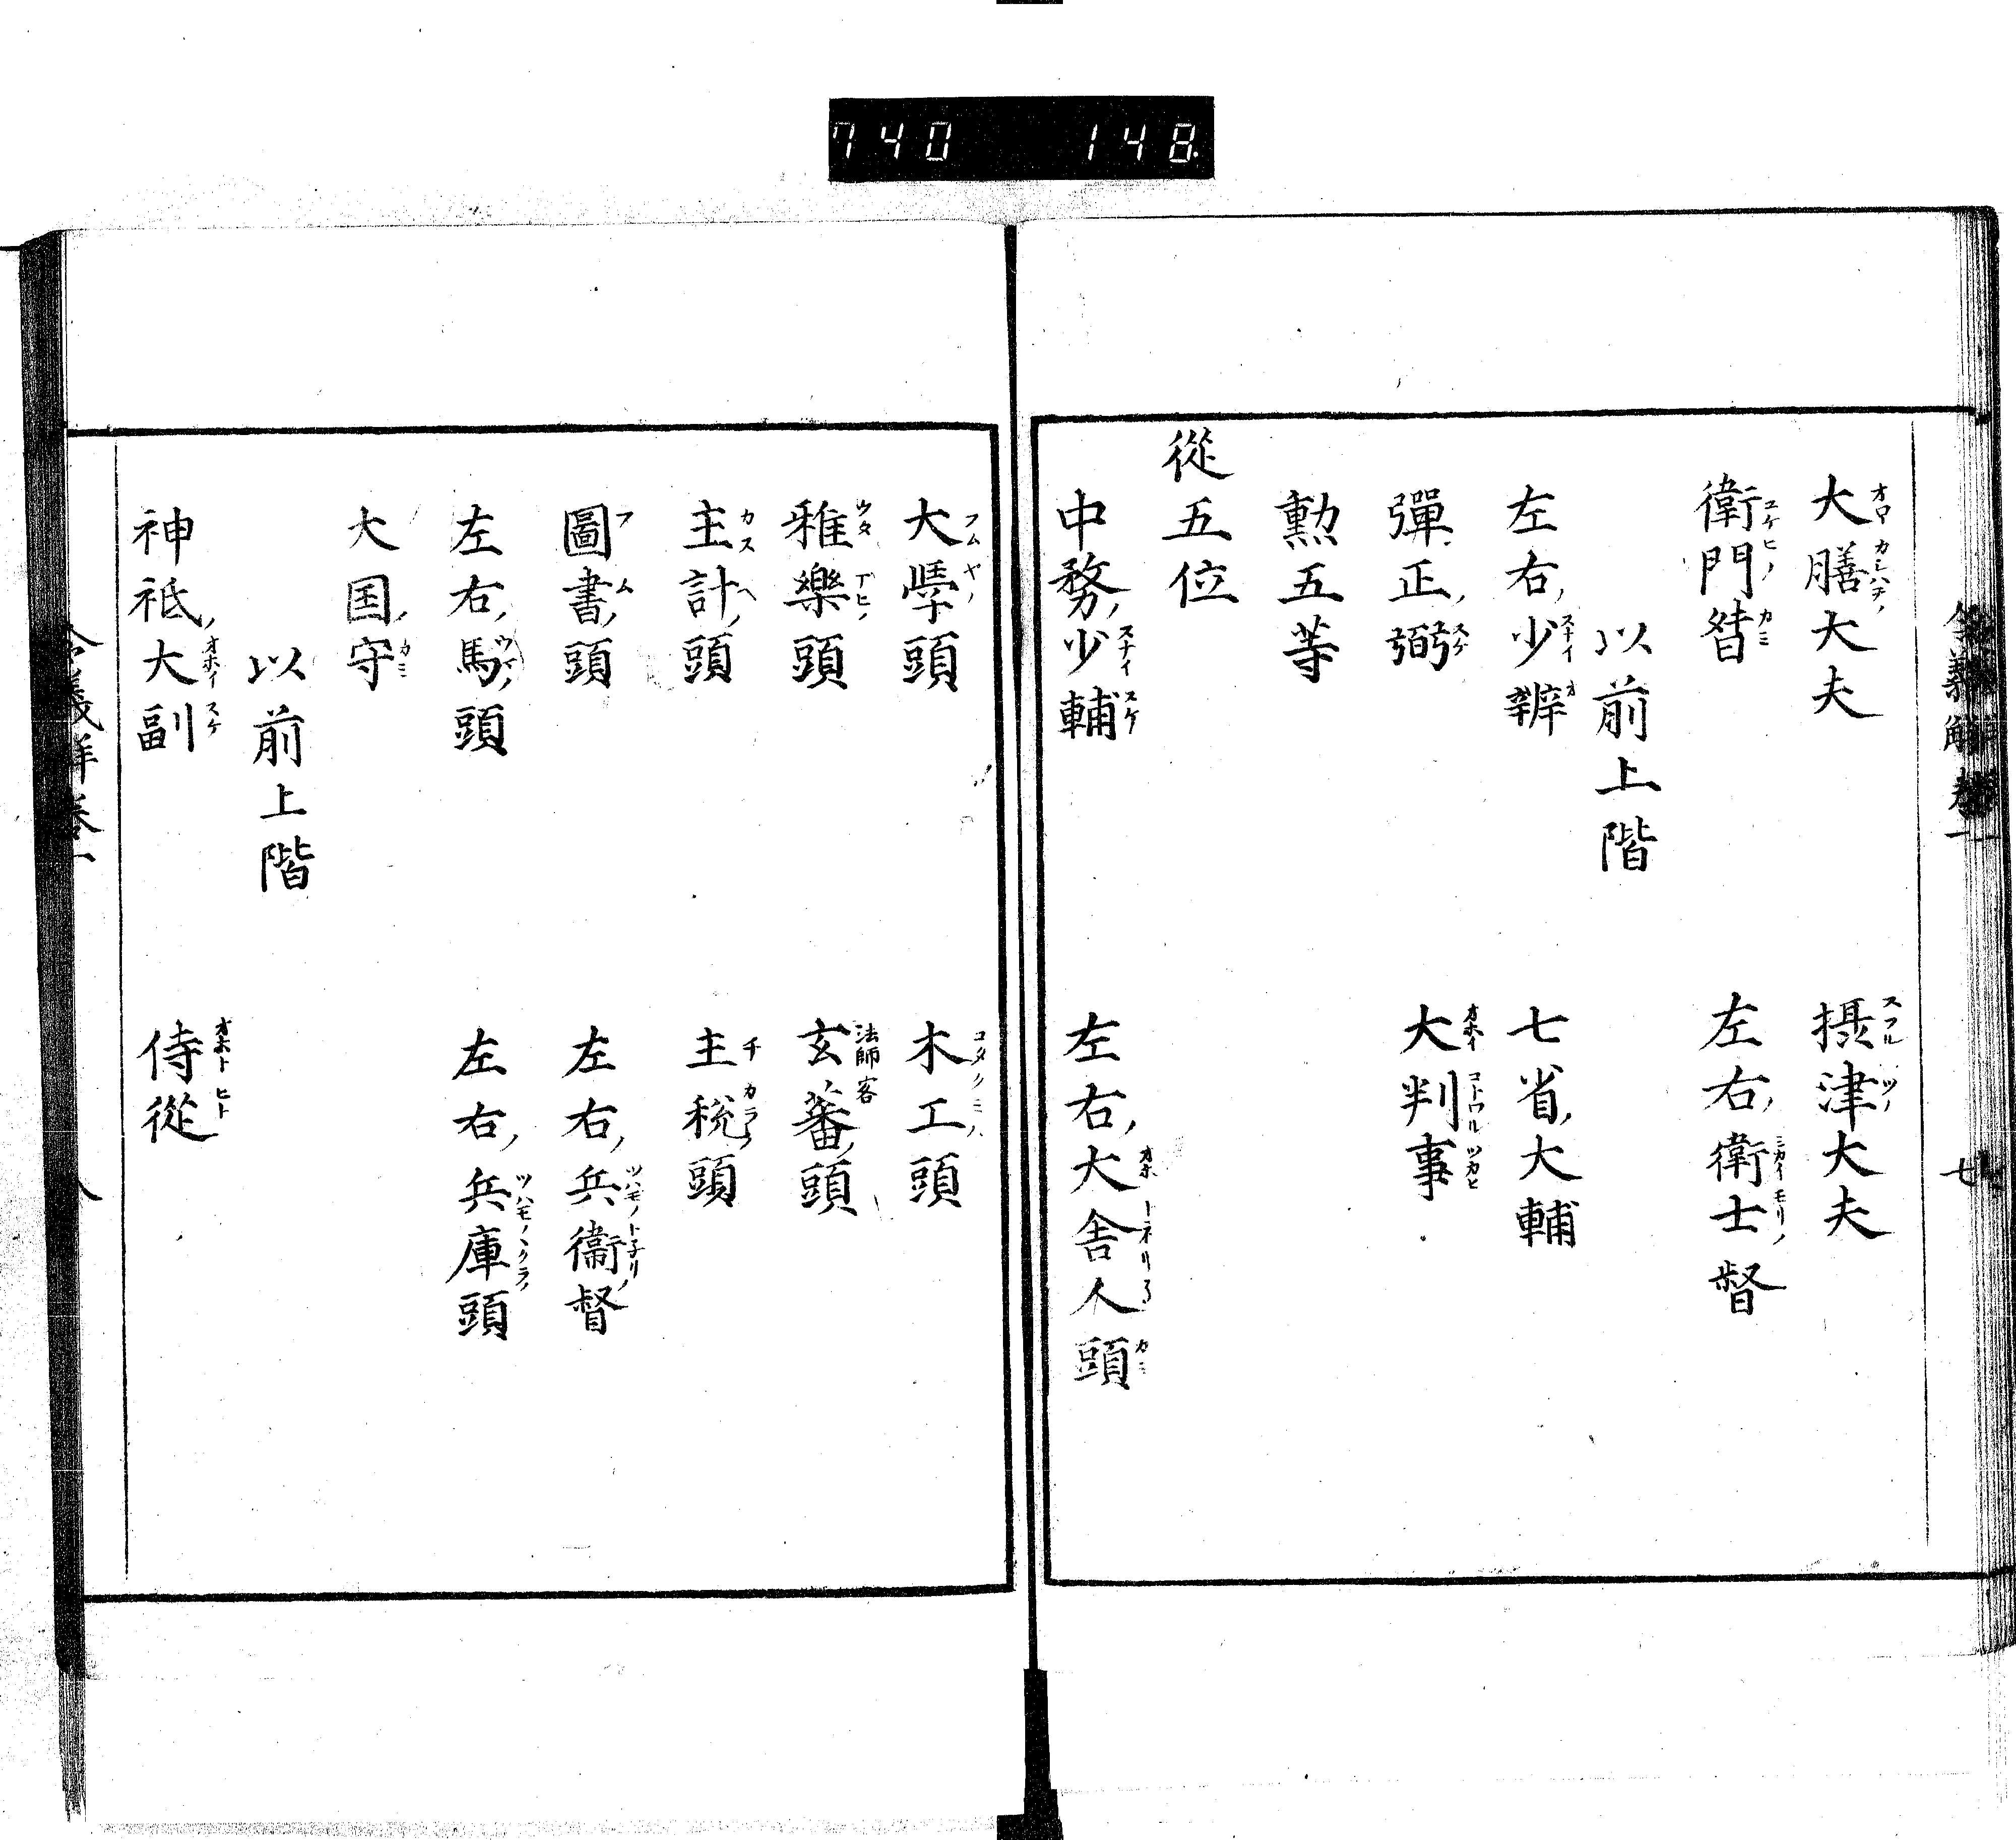 740 148
令義解卷一 七
大膳大夫 摂津大夫
衛門督 左右衛士督
以前上階
左右少辨 七省大輔
彈正弼 大判事
勲五等
從五位
中務少輔 左右大舎人頭
大學頭 木工頭
雅樂頭 玄蕃頭
主計頭 主税頭
圖書頭 左右兵衞督
左右馬頭 左右兵庫頭
大国守
以前上階
神祇大副 侍從
令義解卷一 八